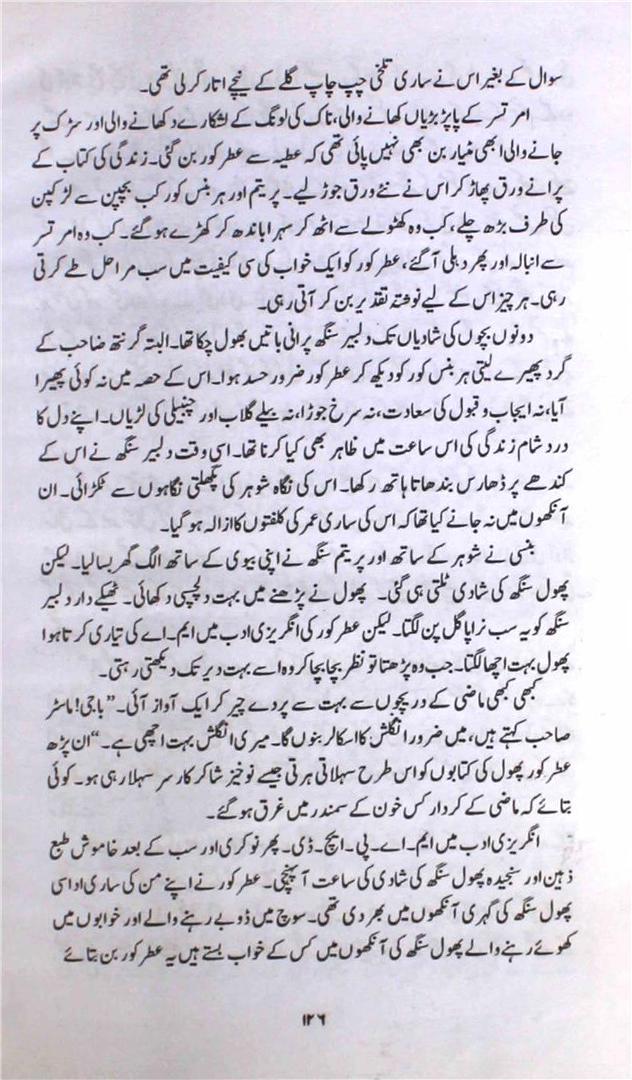 سوال کے بغیر اس نے ساری تلخی چپ چاپ گلے کے نیچے اتار کر لی تھی۔
امر تسر کے پاپڑ بڑیاں کھانے والی، ناک کی لونگ کے لشکارے دکھانے والی اور سڑک پر
جانے والی ابھی مٹیار بن بھی نہیں پائی تھی کہ عطیہ سے عطر کور بن گئی۔ زندگی کی کتاب کے
پرانے ورق پھاڑ کر اس نے نئے ورق جوڑ لیے۔ پریتم اور ہر بنس کور کب بچپن سے لڑکپن
کی طرف بڑھ چلے، کب وہ کھٹولے سے اٹھ کر سہرا باندھ کر کھڑے ہو گئے۔ کب وہ امر تسر
سے انبالہ اور پھر دہلی آ گئے، عطر کور کو ایک خواب کی سی کیفیت میں سب مراحل طے کرتی
رہی۔ ہر چیز اس کے لیے نوشتہ تقدیر بن کر آتی رہی۔
دونوں بچوں کی شادیاں تک دلبیر سنگھ پرانی باتیں بھول چکا تھا۔ البتہ گرنتھ صاحب کے
گرد پھیرے لیتی ہر بنس کور کو دیکھ کر عطر کور ضرور حسد ہوا۔ اس کے حصہ میں نہ کوئی پھیرا
آیا، نہ ایجاب و قبول کی سعادت، نہ سرخ جوڑا، نہ بیلے گلاب اور چنبیلی کی لڑیاں۔ اپنے دل کا
درد شام زندگی کی اس ساعت میں ظاہر بھی کیا کرنا تھا۔ اسی وقت دلبیر سنگھ نے اس کے
کندھے پر ڈھارس بندھاتا ہاتھ رکھا۔ اس کی نگاہ شوہر کی پگھلتی نگاہوں سے ٹکرائی۔ ان
آنکھوں میں نہ جانے کیا تھا کہ اس کی ساری عمر کی کلفتوں کا ازالہ ہو گیا۔
بنسی نے شوہر کے ساتھ اور پریتم سنگھ نے اپنی بیوی کے ساتھ الگ گھر بسا لیا۔ لیکن
پھول سنگھ کی شادی ٹلتی ہی گئی۔ پھول نے پڑھنے میں بہت دلچسپی دکھائی۔ ٹھیکے دار دلبیر
سنگھ کو یہ سب نرا پاگل پن لگتا۔ لیکن عطر کور کی انگریزی ادب میں ایم۔ اے کی تیاری کرتا ہوا
پھول بہت اچھا لگتا۔ جب وہ پڑھتا تو نظر بچا بچا کر وہ اسے بہت دیر تک دیکھتی رہتی۔
کبھی کبھی ماضی کے دریچوں سے بہت سے پردے چیر کر ایک آواز آئی۔ ”باجی! ماسٹر
صاحب کہتے ہیں، میں ضرور انگلش کا اسکالر بنوں گا۔ میری انگلش بہت اچھی ہے۔“ ان پڑھ
عطر کور پھول کی کتابوں کو اس طرح سہلاتی ہرتی جیسے نوخیز شاکر کا سر سہلا رہی ہو۔ کوئی
بتائے کہ ماضی کے کردار کس خون کے سمندر میں غرق ہو گئے۔
انگریزی ادب میں ایم۔ اے۔ پی۔ ایچ۔ ڈی۔ پھر نوکری اور سب کے بعد خاموش طبع
ذہین اور سنجیدہ پھول سنگھ کی شادی کی ساعت آ پہنچی۔ عطر کور نے اپنے من کی ساری اداسی
پھول سنگھ کی گہری آنکھوں میں بھر دی تھی۔ سوچ میں ڈوبے رہنے والے اور خوابوں میں
کھوئے رہنے والے پھول سنگھ کی آنکھوں میں کس کے خواب بستے ہیں یہ عطر کور بن بتائے
۱۲۶